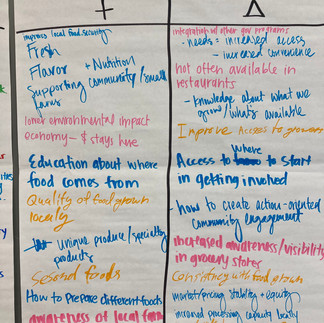 +
improves local food security
Fresh
Flavor + Nutrition
Supporting community/small
farms
lower environmental impact
economy - $ stays here
Education about where
food comes from
Quality of food grown
locally
unique produce/specialty
products
Seasonal foods
How to prepare different foods
awareness of local farm
Δ
integration w/ other gov programs
- needs = increased access
- increased convenience
not often available in
restaurants
- knowledge about what we
grow/what's available
Improve Access to growers
where
Access to to start
in getting involved
- how to create action-oriented
community engagement
increased awareness/visibility
in grocery stores
Consistency with food grown
market/pricing stability + equity
increased processing capacity locally